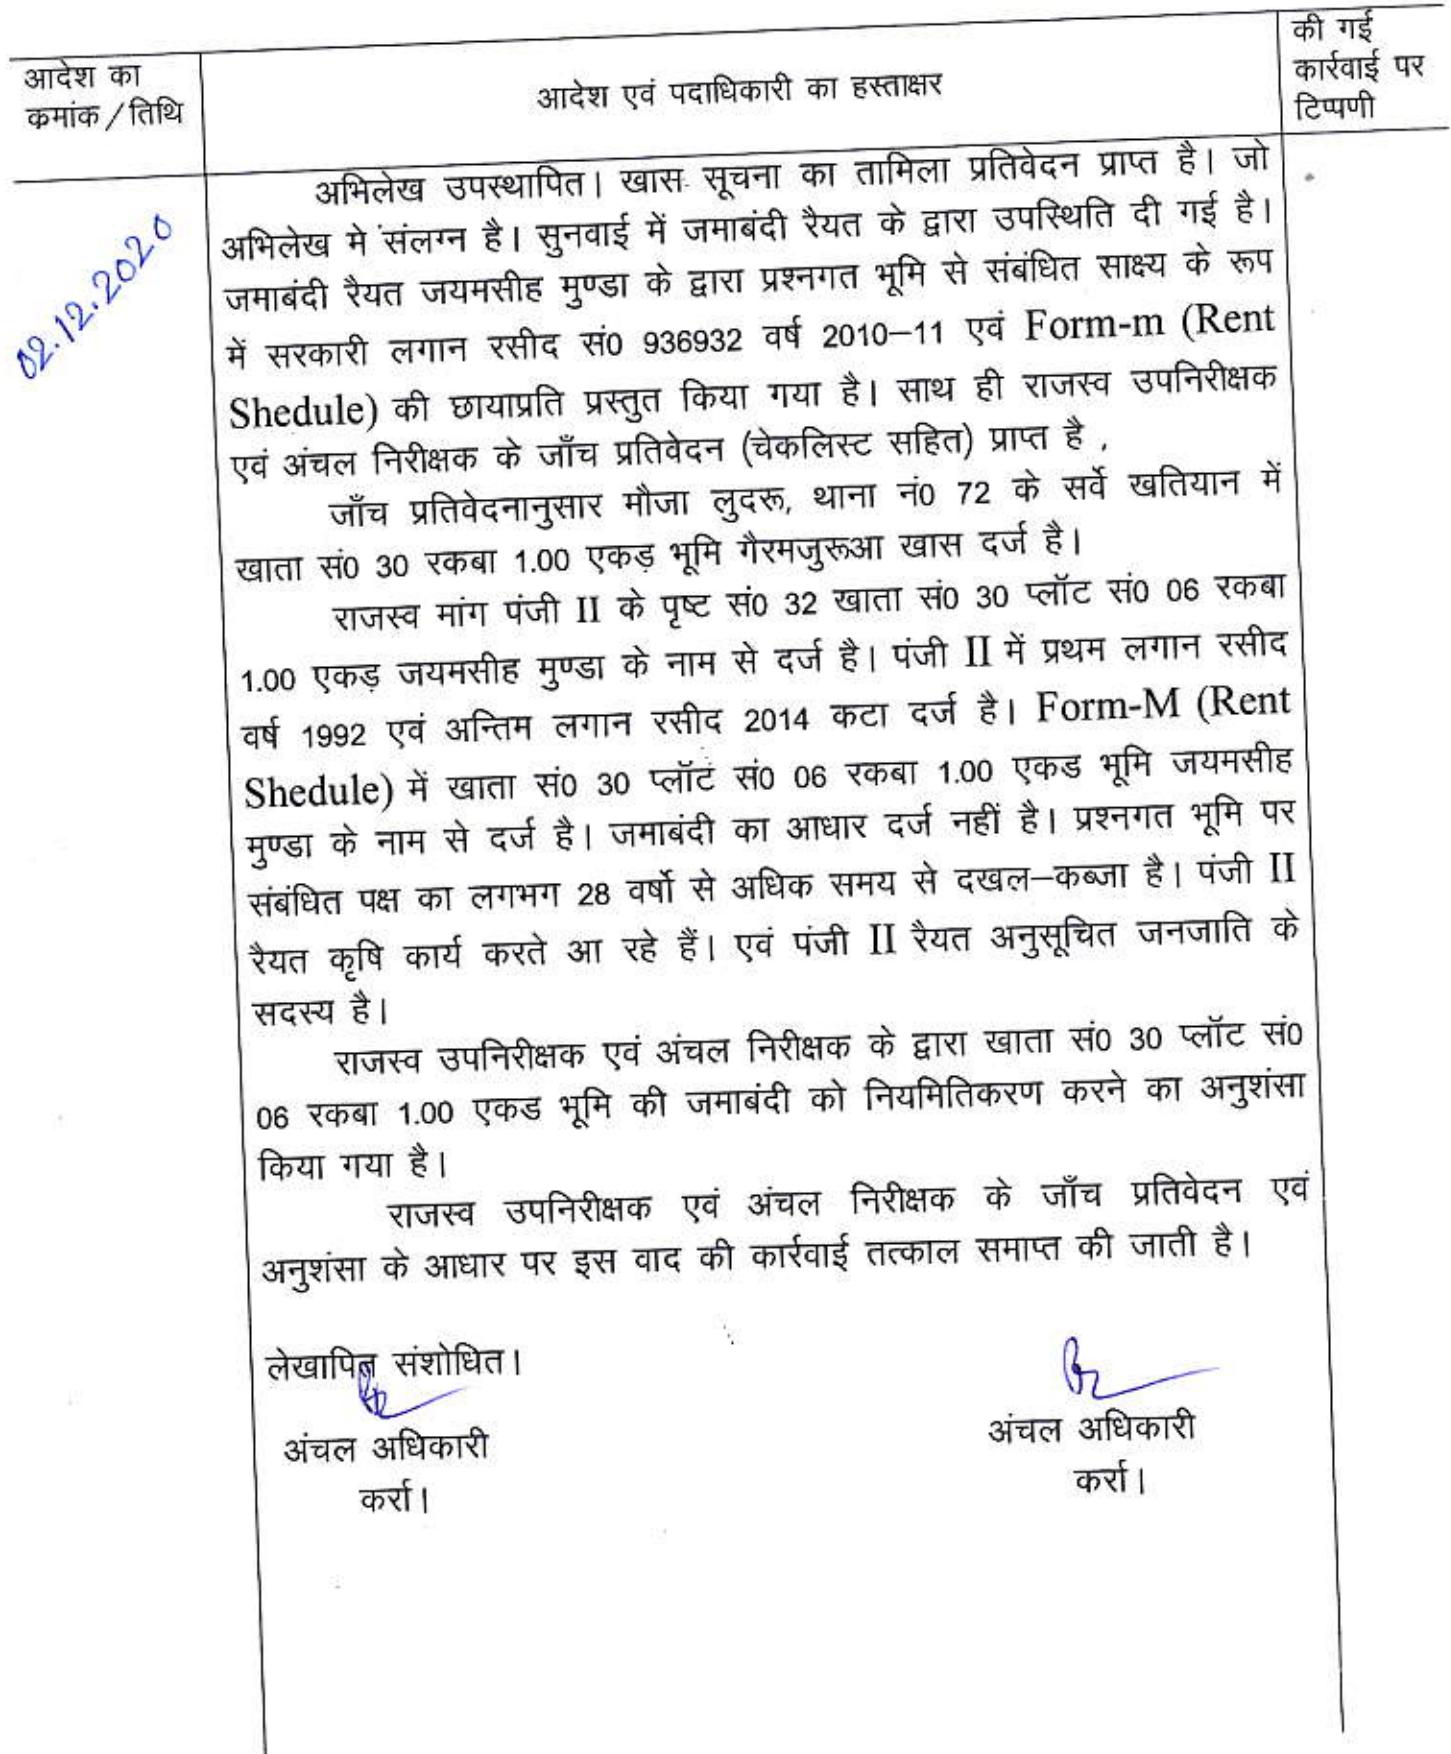 आदेश का
कमांक / तिथि
आदेश एवं पदाधिकारी का हस्ताक्षर
की गई
कार्रवाई पर
टिप्पणी
02.12.2020
अभिलेख उपस्थापित। खास सूचना का तामिला प्रतिवेदन प्राप्त है। जो
अभिलेख मे संलग्न है। सुनवाई में जमाबंदी रैयत के द्वारा उपस्थिति दी गई है।
जमाबंदी रैयत जयमसीह मुण्डा के द्वारा प्रश्नगत भूमि से संबंधित साक्ष्य के रूप
में सरकारी लगान रसीद सं0 936932 वर्ष 2010–11 एवं Form-m (Rent
Shedule) की छायाप्रति प्रस्तुत किया गया है। साथ ही राजस्व उपनिरीक्षक
एवं अंचल निरीक्षक के जाँच प्रतिवेदन (चेकलिस्ट सहित) प्राप्त है ,
जाँच प्रतिवेदनानुसार मौजा लुदरू, थाना नं0 72 के सर्वे खतियान में
खाता सं0 30 रकबा 1.00 एकड़ भूमि गैरमजुरूआ खास दर्ज है।
राजस्व मांग पंजी II के पृष्ट सं0 32 खाता सं0 30 प्लॉट सं0 06 रकबा
1.00 एकड़ जयमसीह मुण्डा के नाम से दर्ज है। पंजी II में प्रथम लगान रसीद
वर्ष 1992 एवं अन्तिम लगान रसीद 2014 कटा दर्ज है। Form-M (Rent
Shedule) में खाता सं0 30 प्लॉट सं0 06 रकबा 1.00 एकड भूमि जयमसीह
मुण्डा के नाम से दर्ज है। जमाबंदी का आधार दर्ज नहीं है। प्रश्नगत भूमि पर
संबंधित पक्ष का लगभग 28 वर्षो से अधिक समय से दखल–कब्जा है। पंजी II
रैयत कृषि कार्य करते आ रहे हैं। एवं पंजी II रैयत अनुसूचित जनजाति के
सदस्य है।
राजस्व उपनिरीक्षक एवं अंचल निरीक्षक के द्वारा खाता सं0 30 प्लॉट सं0
06 रकबा 1.00 एकड भूमि की जमाबंदी को नियमितिकरण करने का अनुशंसा
किया गया है।
राजस्व उपनिरीक्षक एवं अंचल निरीक्षक के जाँच प्रतिवेदन एवं
अनुशंसा के आधार पर इस वाद की कार्रवाई तत्काल समाप्त की जाती है।
लेखापित संशोधित।
अंचल अधिकारी
कर्रा।
अंचल अधिकारी
कर्रा।